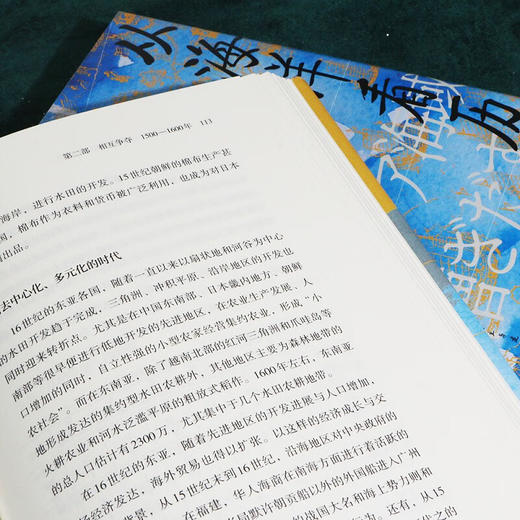 从海洋看历
第二部 相互争夺 1500—1600年 113
海岸，进行水田的开发。15世纪朝鲜的棉布生产甚
国，棉布作为衣料和货币被广泛利用，也成为对日本
出品。
去中心化、多元化的时代
16世纪的东亚各国，随着一直以来以扇状地和河谷为中心
的水田开发趋于完成，三角洲、冲积平原、沿岸地区的开发也
同时迎来转折点。尤其是在中国东南部、日本畿内地方、朝鲜
南部等很早便进行低地开发的先进地区，在农业生产发展、人
口增加的同时，自立性强的小型农家经营集约农业，形成“小
农社会”。而在东南亚，除了越南北部的红河三角洲和爪哇岛等
地形成发达的集约型水田农耕外，其他地区主要为森林地带的
火耕农业和河水泛滥平原的粗放式稻作。1600年左右，东南亚
的总人口估计有2300万，尤其集中于几个水田农耕地带。
在16世纪的东亚，随着先进地区的开发进展与人口增加，
经济发达，海外贸易也得以扩张。以这样的经济成长与交
背景，从15世纪末到16世纪，沿海地区对中央政府的
在福建，华人海商在南海方面进行着活跃的
局默许朝贡船以外的外国船进入广州
的战国大名和海上势力则和
行为。还有，从15